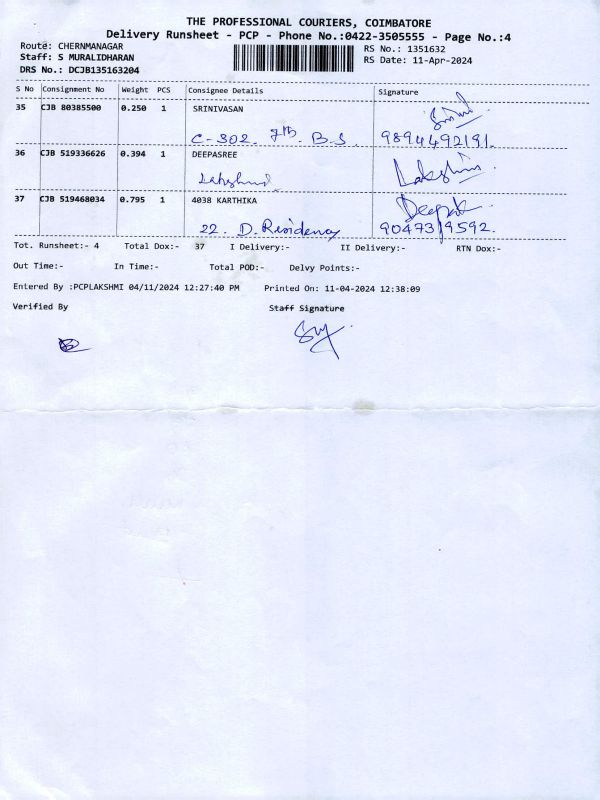 THE PROFESSIONAL COURIERS, COIMBATORE
Delivery Runsheet - PCP - Phone No.:0422-3505555 - Page No.:4
Route: CHERNMANAGAR
Staff: S MURALIDHARAN
DRS No.: DCJB135163204
RS No.: 1351632
RS Date: 11-Apr-2024
S No Consignment No Weight PCS Consignee Details Signature
35 CJB 80385500 0.250 1 SRINIVASAN
C-302. 7th B.S. 9894492191.
36 CJB 519336626 0.394 1 DEEPASREE
Lakshmi Lakshmi
37 CJB 519468034 0.795 1 4038 KARTHIKA Deepak
22. D. Residency 9047319592.
Tot. Runsheet:- 4 Total Dox:- 37 I Delivery:- II Delivery:- RTN Dox:-
Out Time:- In Time:- Total POD:- Delvy Points:-
Entered By :PCPLAKSHMI 04/11/2024 12:27:40 PM Printed On: 11-04-2024 12:38:09
Verified By Staff Signature